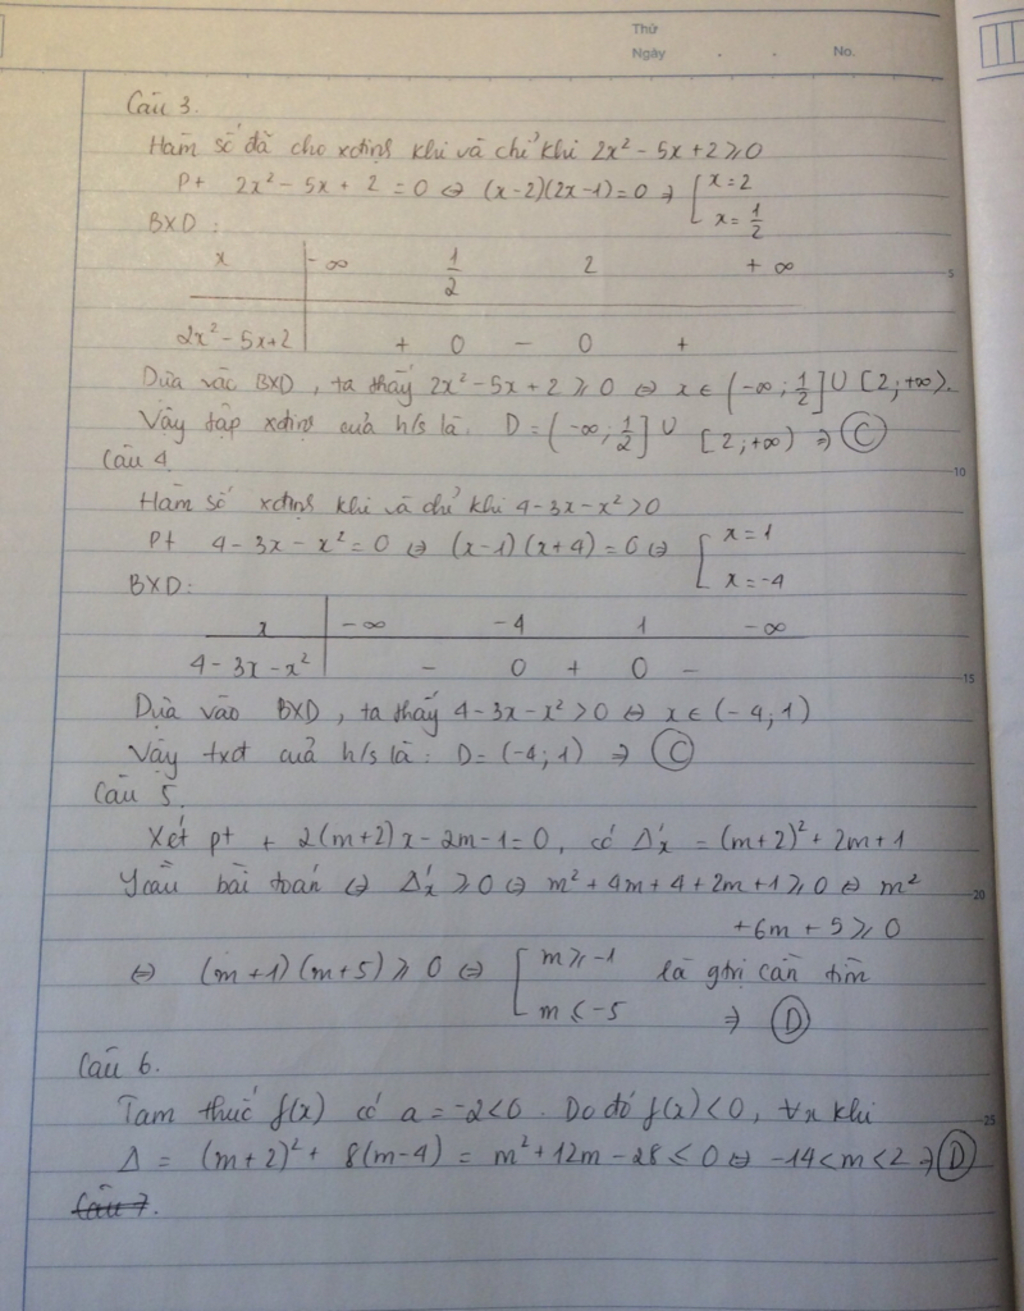 Thứ
Ngày . . No.
Câu 3.
Hàm số đã cho xđịnh khi và chỉ khi 2x² - 5x + 2 ⩾ 0
Pt 2x² - 5x + 2 = 0 ⇔ (x-2)(2x-1) = 0 ⇒ [ x = 2
x = 1/2
BXD :
x | -∞ 1/2 2 +∞
5
2x² - 5x + 2 | + 0 - 0 +
Dựa vào BXD, ta thấy 2x² - 5x + 2 ⩾ 0 ⇔ x ∈ (-∞; 1/2] ∪ [2; +∞).
Vậy tập xđịnh của h/s là. D = (-∞; 1/2] ∪ [2; +∞) ⇒ Ⓒ
Câu 4.
10
Hàm số xđịnh khi và chỉ khi 4 - 3x - x² > 0
Pt 4 - 3x - x² = 0 ⇔ (x-1)(x+4) = 0 ⇔ [ x = 1
x = -4
BXD:
x | -∞ -4 1 -∞
4 - 3x - x² | - 0 + 0 -
15
Dựa vào BXD, ta thấy 4 - 3x - x² > 0 ⇔ x ∈ (-4; 1)
Vậy txđ của h/s là : D = (-4; 1) ⇒ Ⓒ
Câu 5.
Xét pt + 2(m+2)x - 2m - 1 = 0, có Δ'x = (m+2)² + 2m + 1
Ycầu bài toán ⇔ Δ'x ⩾ 0 ⇔ m² + 4m + 4 + 2m + 1 ⩾ 0 ⇔ m²
20
+ 6m + 5 ⩾ 0
⇔ (m+1)(m+5) ⩾ 0 ⇔ [ m ⩾ -1 là gtrị cần tìm
m ⩽ -5 ⇒ Ⓓ
Câu 6.
Tam thức f(x) có a = -2 < 0. Do đó f(x) < 0, ∀x khi
25
Δ = (m+2)² + 8(m-4) = m² + 12m - 28 < 0 ⇔ -14 < m < 2 ⇒ Ⓓ
Câu 7.